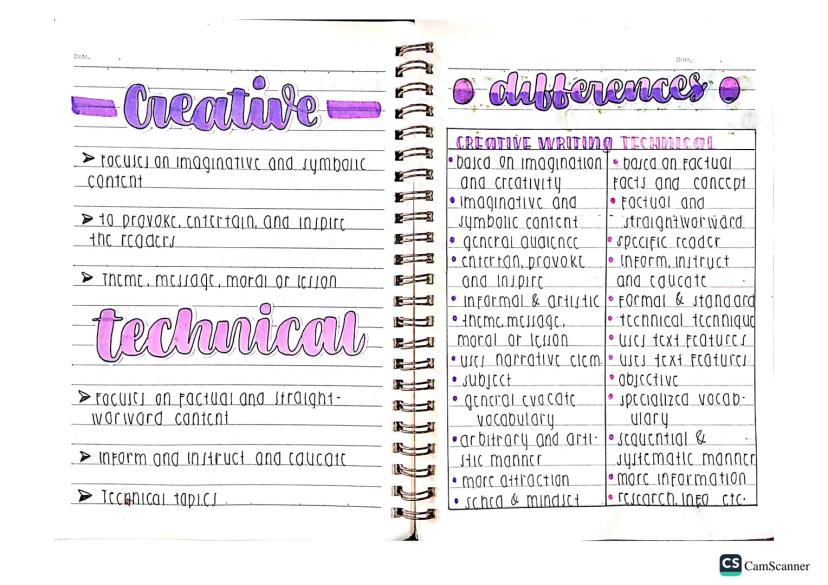 Date.
Creative
➤ Focuses on imaginative and symbolic
content
➤ to provoke, entertain, and inspire
the readers
➤ Theme, message, moral or lesson
technical
➤ Focuses on factual and straight-
worward content
➤ Inform and instruct and educate
➤ Technical topics
Date.
differences
CREATIVE WRITING TECHNICAL
• based on imagination
and creativity
• imaginative and
symbolic content
• general audience
• entertan, provoke
and inspire
• informal & artistic
• theme, message,
moral or lesson
• uses narrative elem.
• subject
• general
vocabulary
• arbitrary and arti-
stic manner
• more attraction
• & mindset
• based on factual
facts and concept
• factual and
straightworward
• specific reader
• inform, instruct
and educate
• formal & standard
• technical technique
• uses text features
• uses text features
• objective
• specialized vocab-
ulary
• sequential &
systematic manner
• more information
• research, info etc.
CS CamScanner